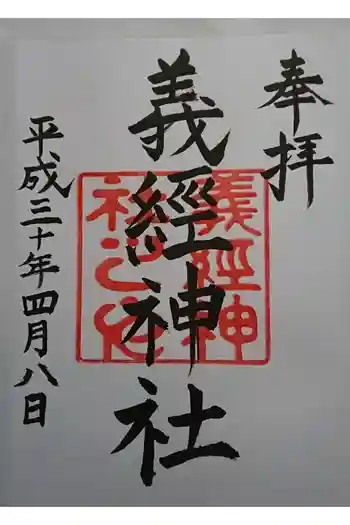 奉拝
義經神社
平成三十年四月八日
義經神
社之印